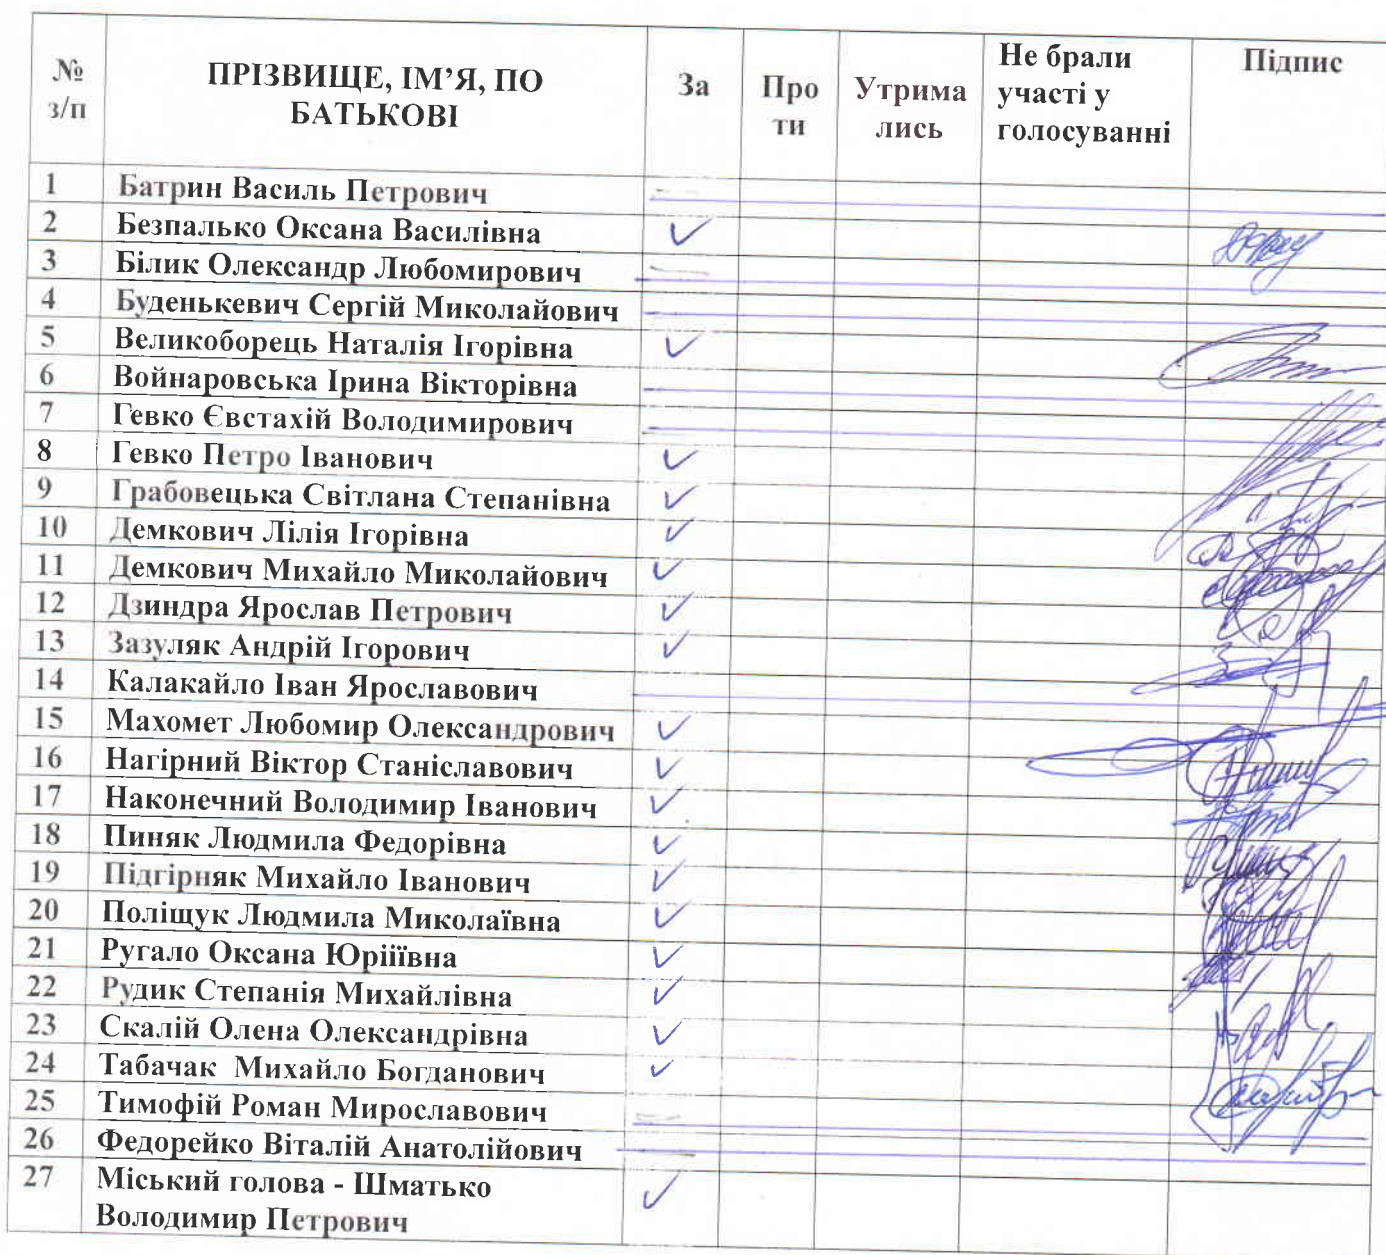 № з/п ПРІЗВИЩЕ, ІМ’Я, ПО БАТЬКОВІ За Про ти Утрима лись Не брали участі у голосуванні Підпис
1 Батрин Василь Петрович
2 Безпалько Оксана Василівна ✓
3 Білик Олександр Любомирович
4 Буденькевич Сергій Миколайович
5 Великоборець Наталія Ігорівна ✓
6 Войнаровська Ірина Вікторівна
7 Гевко Євстахій Володимирович
8 Гевко Петро Іванович ✓
9 Грабовецька Світлана Степанівна ✓
10 Демкович Лілія Ігорівна ✓
11 Демкович Михайло Миколайович ✓
12 Дзиндра Ярослав Петрович ✓
13 Зазуляк Андрій Ігорович ✓
14 Калакайло Іван Ярославович
15 Махомет Любомир Олександрович ✓
16 Нагірний Віктор Станіславович ✓
17 Наконечний Володимир Іванович ✓
18 Пиняк Людмила Федорівна ✓
19 Підгірняк Михайло Іванович ✓
20 Поліщук Людмила Миколаївна ✓
21 Ругало Оксана Юріїївна ✓
22 Рудик Степанія Михайлівна ✓
23 Скалій Олена Олександрівна ✓
24 Табачак Михайло Богданович ✓
25 Тимофій Роман Мирославович
26 Федорейко Віталій Анатолійович
27 Міський голова - Шматько ✓
Володимир Петрович